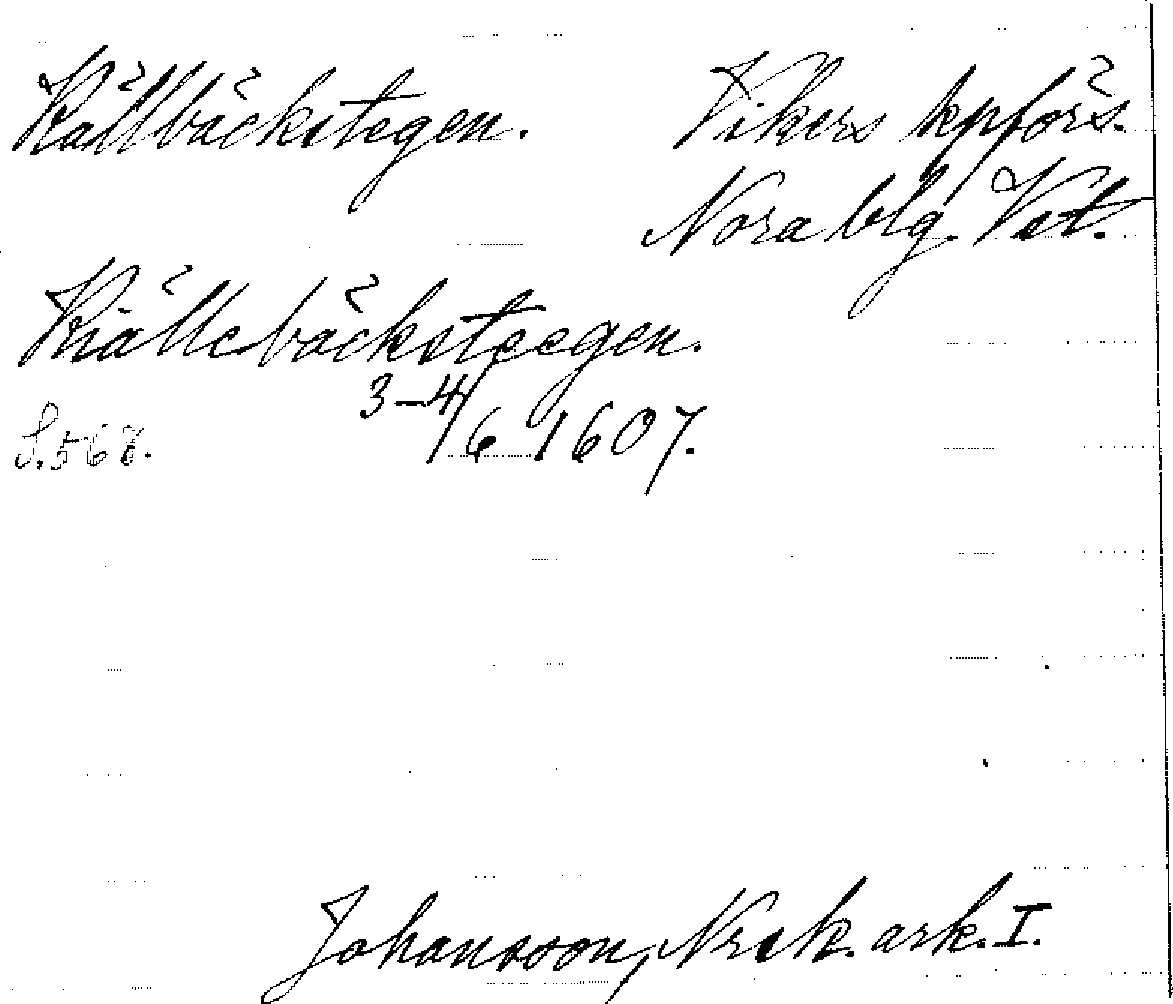 Källbäckstegen. Vikers kpförs.
Nora blg. Vst.
Kiällebäcksteegen.
3-4/6 1607.
S. 568.
Johansson, Nrsk. ark. I.